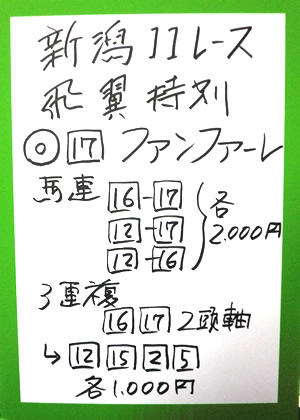 新潟11レース
飛翼特別
◎ 17 ファンファーレ
馬連 16-17
12-17
12-16
各2.000円
3連複
16 17 2頭軸
↳ 12 15 2 5
各1.000円